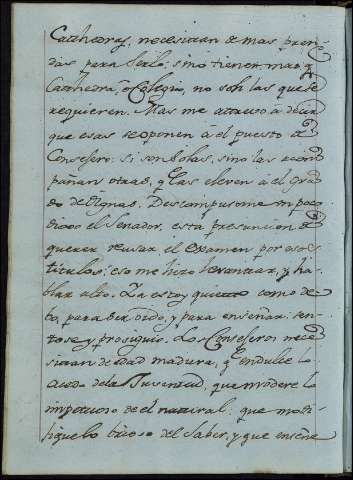 Cathedras, necesitan de mas pren-
das para serlo: sino tienen mas q.
Cathedra, ò Colegio, no son las que se
requieren. Mas me atrevo à decir
que esas se oponen à el puesto de
Consejero: si son solas, sino las acom
pañan otras, q. las eleven à el gra
do de dignas. Descompusome un poco
dixo el Senador, esta presuncion de
querer reusar el examen por esos
titulos: eso me hizo levantar, y ha-
blar alto. Ya estoy quieto como de-
to, para ser oido, y para enseñar: sen-
tose, y prosiguio. Los Consejeros nece
sitan de edad madura, q. endulce lo
acedo de la Juventud, que modere lo
impetuoso de el natural: que morti-
fique lo brioso del saber, y que enseñe